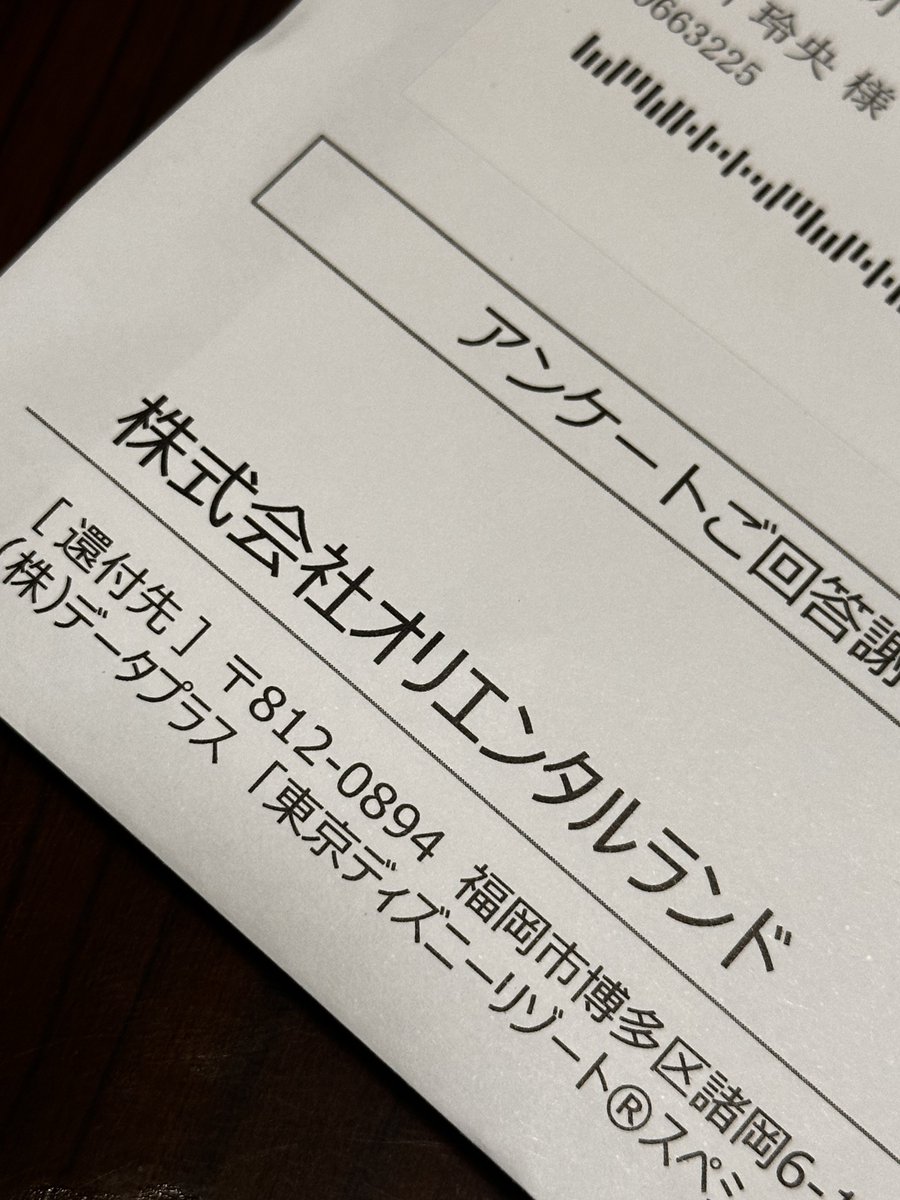 玲央 様
0663225
アンケートご回答謝
株式会社オリエンタルランド
[ 還付先 ] 〒812-0894 福岡市博多区諸岡6-
(株)データプラス 「東京ディズニーリゾート®スペシ